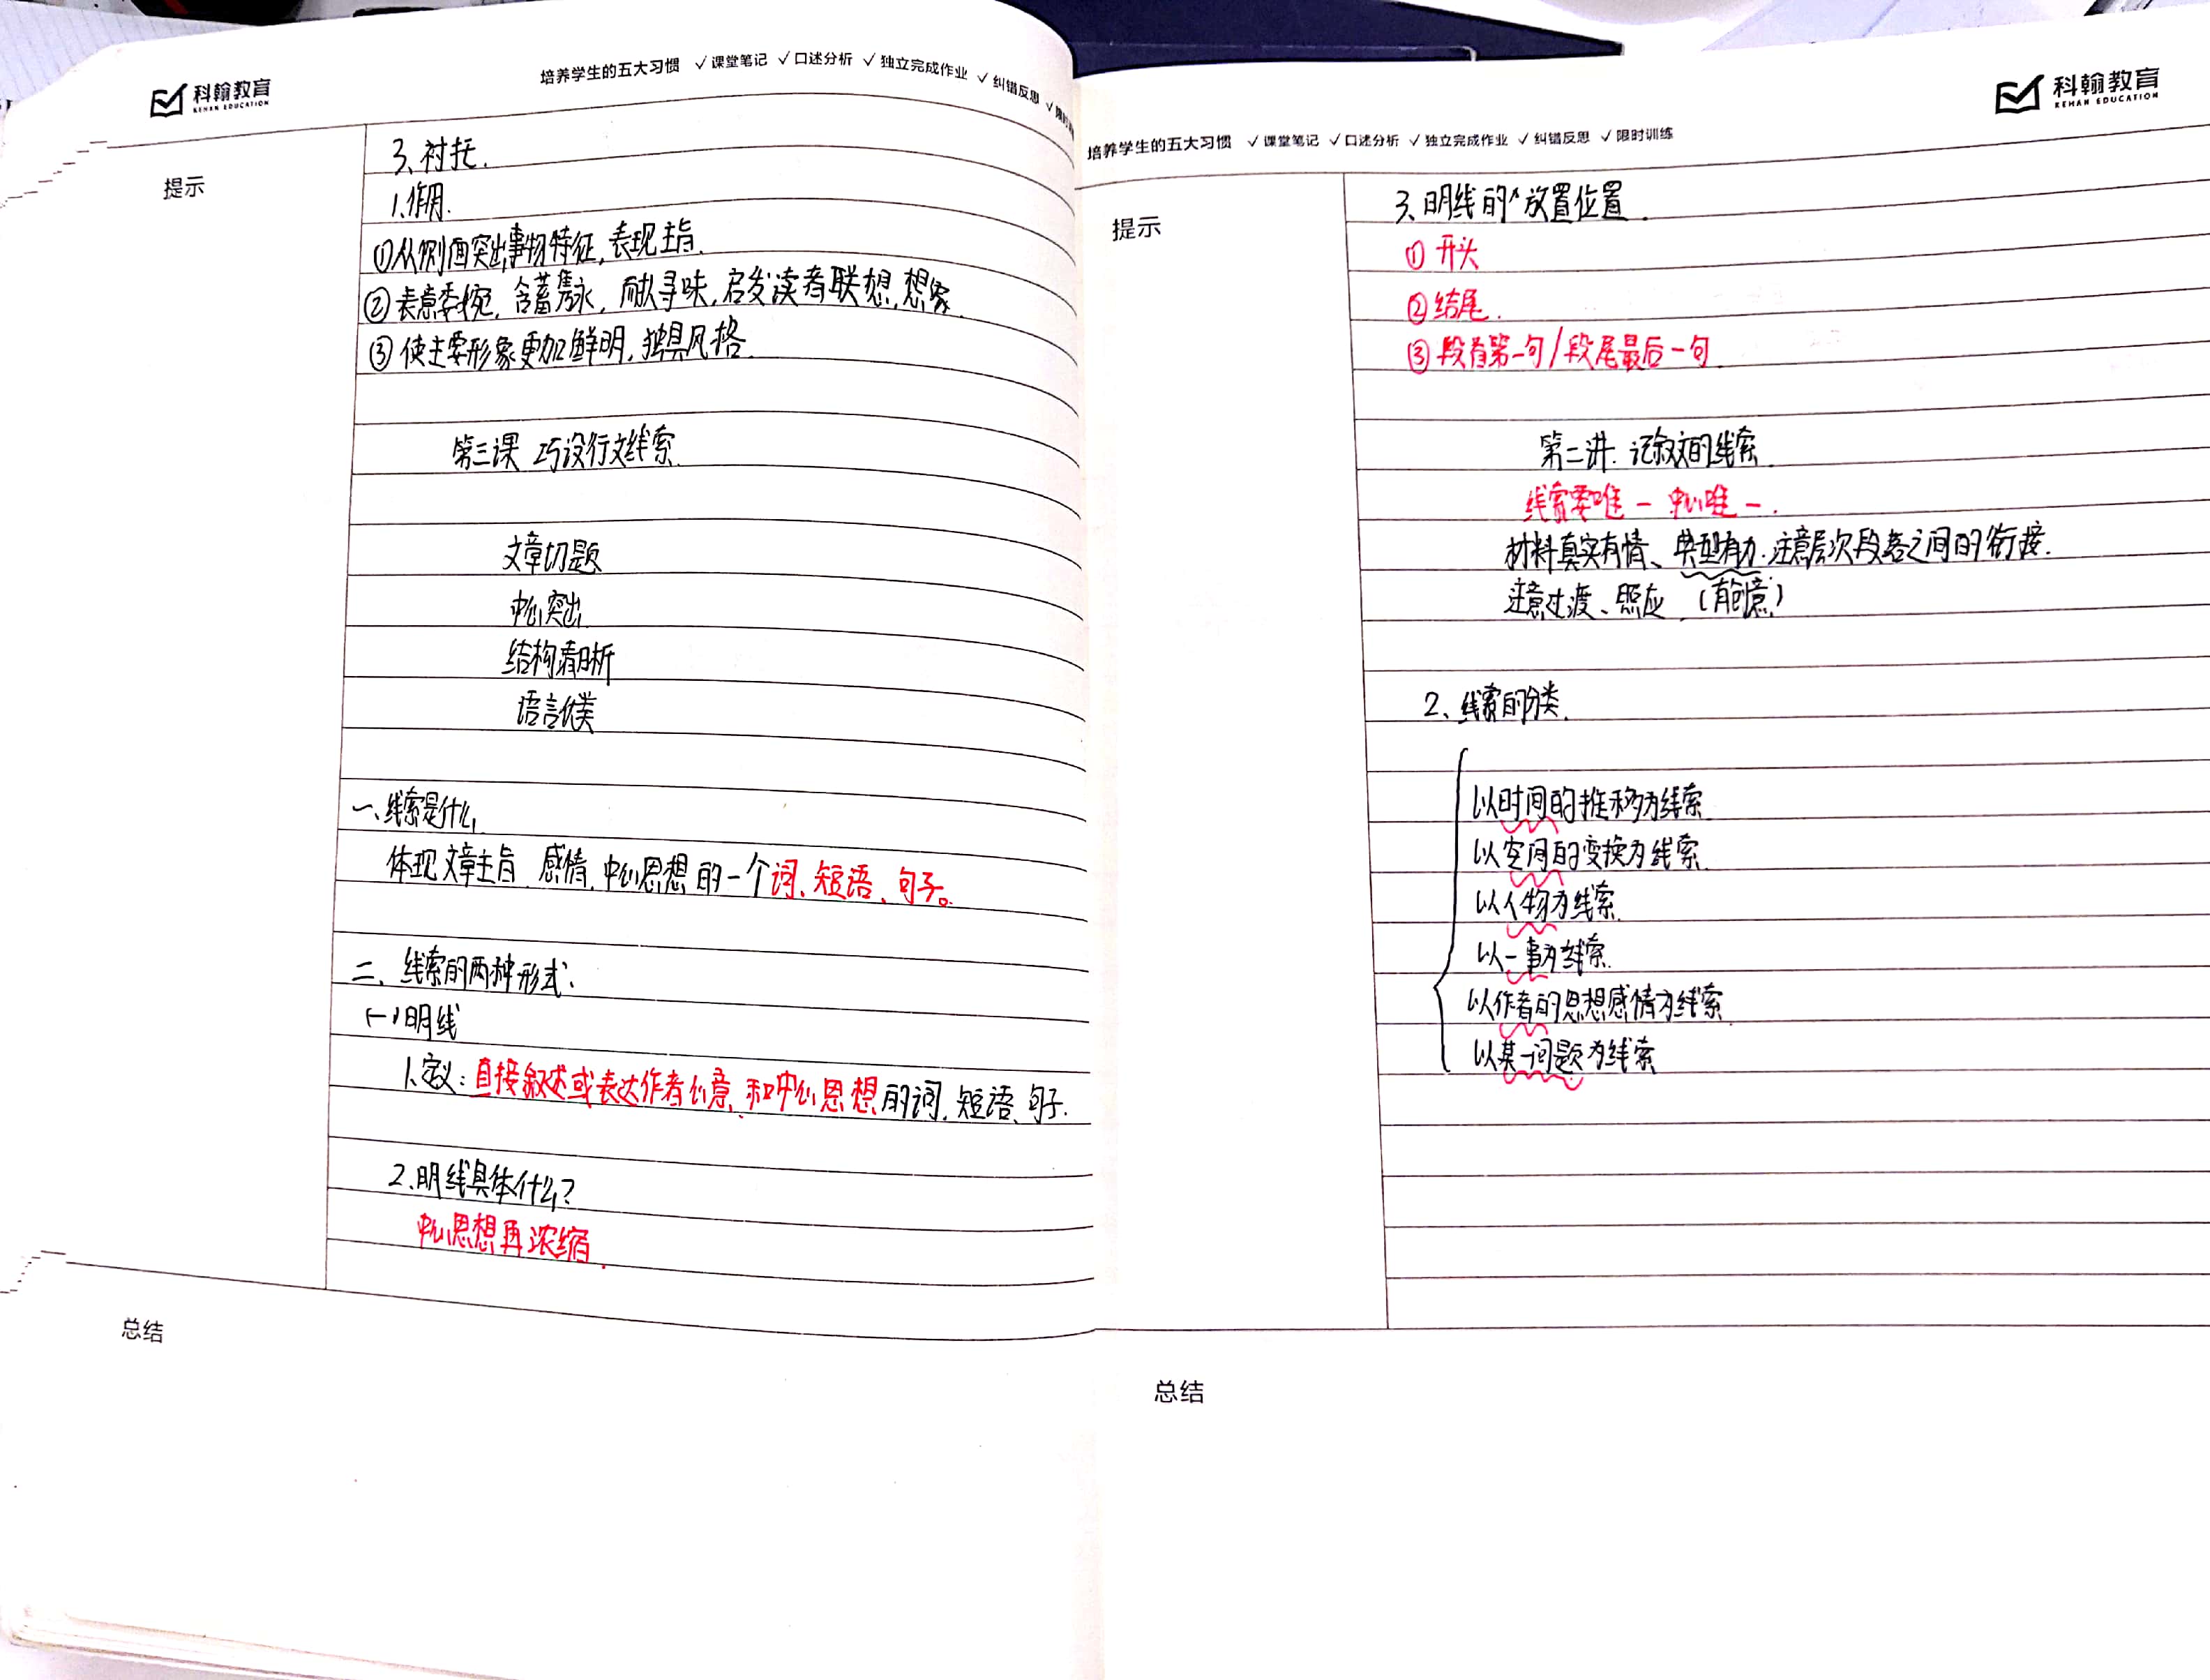 科翰教育
KEHAN EDUCATION
培养学生的五大习惯 ✓课堂笔记 ✓口述分析 ✓独立完成作业 ✓纠错反思 ✓限时训练
提示
3、衬托.
1、作用.
①从侧面突出事物特征,表现主旨.
②表意委婉,含蓄隽永,耐人寻味,启发读者联想,想象.
③使主要形象更加鲜明,独具风格.
第三课 巧设行文线索.
文章切题
中心突出
结构清晰
语言优美
一、线索是什么
体现文章主旨、感情、中心思想的一个词、短语、句子。
二、线索的两种形式:
(一)明线
1、定义:直接叙述或表达作者心意、和中心思想的词、短语、句子.
2、明线具体什么?
中心思想再浓缩.
总结
科翰教育
KEHAN EDUCATION
培养学生的五大习惯 ✓课堂笔记 ✓口述分析 ✓独立完成作业 ✓纠错反思 ✓限时训练
提示
3、明线的放置位置.
①开头
②结尾.
③段首第一句/段尾最后一句.
第二讲.记叙文的线索.
线索要唯一 中心唯一.
材料真实有情、典型有力.注意层次段落之间的衔接.
注意过渡、照应 (有创意)
2、线索的分类.
以时间的推移为线索
以空间的变换为线索.
以人物为线索.
以一事为线索.
以作者的思想感情为线索
以某一问题为线索
总结